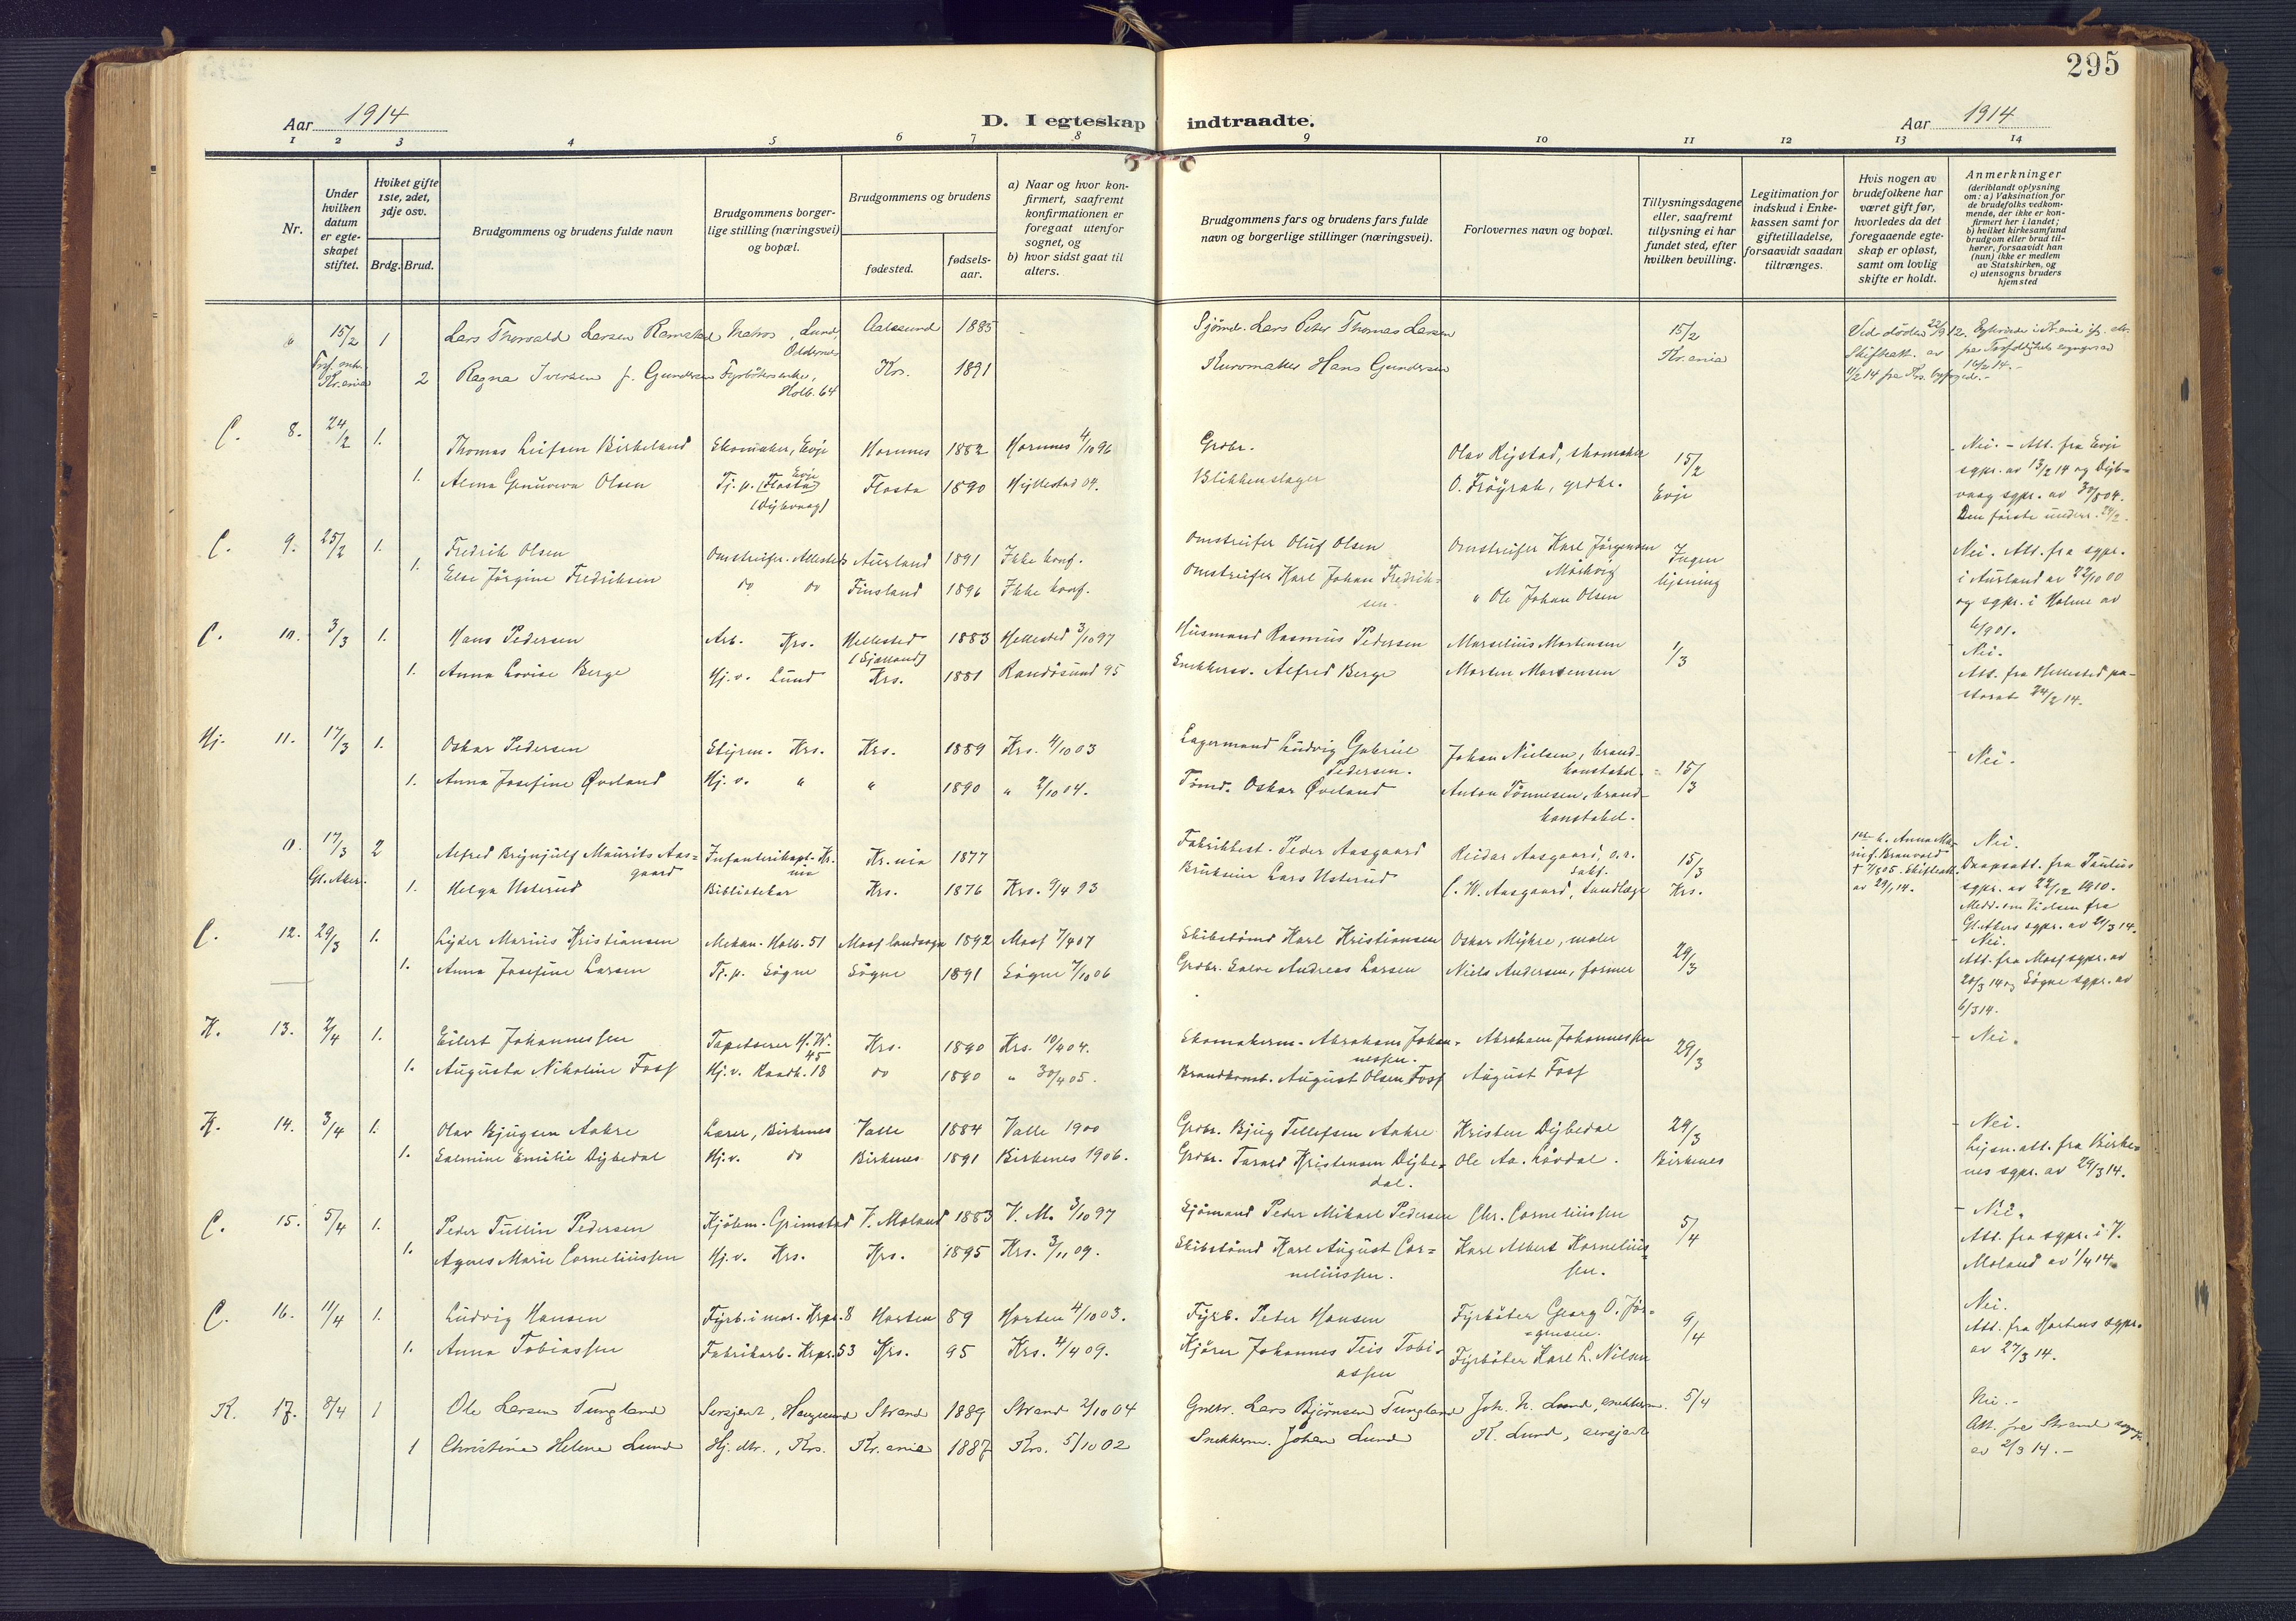 295
Aar 1914
D. I egteskap indtraadte.
Aar 1914
1 2 3 4 5 6 7 8 9 10 11 12 13 14
Nr.
Under hvilken datum er egteskapet stiftet.
Hviket gifte 1ste, 2det, 3dje osv.
Brdg. Brud.
Brudgommens og brudens fulde navn
Brudgommens borgerlige stilling (næringsvei) og bopæl.
Brudgommens og brudens
fødested.
fødselsaar.
a) Naar og hvor konfirmert, saafremt konfirmationen er foregaat utenfor sognet, og
b) hvor sidst gaat til alters.
Brudgommens fars og brudens fars fulde navn og borgerlige stillinger (næringsvei).
Forlovernes navn og bopæl.
Tillysningsdagene eller, saafremt tillysning ei har fundet sted, efter hvilken bevilling.
Legitimation for indskud i Enkekassen samt for giftetilladelse, forsaavidt saadan tiltrænges.
Hvis nogen av brudefolkene har været gift før, hvorledes da det foregaaende egteskap er opløst, samt om lovlig skifte er holdt.
Anmerkninger
(deriblandt oplysning om: a) Vaksination for de brudefolks vedkommende, der ikke er konfirmert her i landet; b) hvilket kirkesamfund brudgom eller brud tilhører, forsaavidt han (hun) ikke er medlem av Statskirken, og c) utensogns bruders hjemsted
15/2 1 Lars Thorvald Larsen Ramstad Matros, Lund, Aalesund 1885 Sjømd. Lars Peter Thomas Larsen 15/2 Ved døden 22/9 12.
Kr.ania 2 Ragna Iversen f. Gundersen Fyrbøterenke, Holb. 64 Krs. 1891 Kurvmaker Hans Gundersen Kr.ania Skifteatt. av 11/2 14 fra Krs. byfoged.-
C. 8. 24/2 1. Thomas Leifsen Birkeland Skomaker, Evje Hornnes 1882 Hornnes 4/10 96 Grdbr. Olav Rysstad, skomaker 15/2 Nei. - Att. fra Evje
1. Alma Genuveva Olsen Tj.p. (Flosta) Evje Flosta 1890 Hyllestad 04. Blikkenslager O. Frøyrak, grdbr. Evje sgpr. av 13/2 14 og Dyb-
(Dybvaag) vaag sgpr. av 30/8 04.
C. 9. 25/2 1. Fredrik Olsen Omstreifer. Allesteds Aurland 1891 Ikke konf. Omstreifer Oluf Olsen Omstreifer Karl Jørgensen Ingen Nei. Att. fra sgpr.
1. Else Jørgine Fredriksen do do Finsland 1896 Ikke konf. Omstreifer Karl Johan Fredriksen. " Ole Johan Olsen lysning i Aurland av 22/10 00
og sgpr. i Holme av 6/9 01.
C. 10. 3/3 1. Hans Pedersen Arb. Krs. Hellested (Sjælland) 1883 Hellested 3/10 97 Husmand Rasmus Pedersen Marselius Mortensen 1/3 Nei.
1. Anna Lovise Berge Hj.v. Lund Krs. 1881 Randøsund 95 Snekkersv. Alfred Berge Morten Mortensen Att. fra Hellested pa-
storat 24/2 14.
Hj. 11. 17/3 1. Oskar Pedersen Styrm. Krs. Krs. 1889 Krs. 4/10 03 Lagermand Ludvig Gabriel Pedersen. Johan Nielsen, brandkonstabel. 15/3 Nei.
1. Anna Josefine Øveland Hj.v. " " 1890 " 2/10 04. Tømd. Oskar Øveland Anton Tønnesen, brandkonstabel.
0. 17/3 2 Alfred Brynjulf Maurits Aasgaard Infanterikapt. Kr.nia Kr.nia 1877 Fabrikbest. Peder Aasgaard Reidar Aasgaard, o.r.sakf. 15/3 Nei.
Gl. Aker. 1. Helga Usterud Bibliotekar Krs. 1876 Krs. 9/4 93 Brukseier Lars Usterud C. W. Aasgaard, tandlæge Krs. Daapsatt. fra Paulus
sgpr. av 22/12 1910.
Medd. om Vielsen fra
Gl. Akers sgpr. av 21/3 14.
C. 12. 29/3 1. Lyder Marius Kristiansen Mekan. Holb. 51 Moss landsogn 1892 Moss 7/4 07 Skibstømd Karl Kristiansen Oskar Myhre, maler 29/3 Nei.
1. Anna Josefine Larsen Tj.p. Søgne Søgne 1891 Søgne 7/10 06 Grdbr. Salve Andreas Larsen Niels Andersen, former Att. fra Moss sgpr. av
20/3 14 og Søgne sgpr. av
6/3 14.
K. 13. 2/4 1. Eilert Johannessen Tapetserer H.W. 45 Krs. 1890 Krs. 10/4 04. Skomakerm. Abraham Johannessen. Abraham Johannessen 29/3 Nei.
1. Augusta Nikoline Foss Hj.v. Raadh. 18 do 1890 " 30/4 05. Brandkonst. August Olsen Foss August Foss
K. 14. 3/4 1. Olav Bjugsen Aakre Lærer, Birkenes Valle 1884 Valle 1900 Grdbr. Bjug Tellefsen Aakre Kristen Dybedal 29/3 Nei.
1. Salmine Emilie Dybedal Hj.v. do Birkenes 1891 Birkenes 1906. Grdbr. Tarald Kristensen Dybedal. Ole Aa. Løvdal. Birkenes Lysn.att. fra Birke-
nes sgpr. av 29/3 14.
C. 15. 5/4 1. Peder Tullin Pedersen Kjøbm. Grimstad V. Moland 1883 V. M. 3/10 97 Sjømand Peder Mikael Pedersen Chr. Corneliussen 5/4 Nei.
1. Agnes Marie Corneliussen Hj.v. Krs. Krs. 1895 Krs. 3/11 09. Skibstømd Karl August Corneliussen. Karl Albert Korneliussen. Att. fra sgpr. i V.
Moland av 1/4 14.
C. 16. 11/4 1. Ludvig Hansen Fyrb. i mar. Krpr. 8 Horten 89 Horten 4/10 03. Fyrb. Peter Hansen Fyrbøter Georg O. Jørgensen. 9/4 Nei.
1. Anna Tobiassen Fabrikarb. Krpr. 53 Krs. 95 Krs. 4/4 09. Kjører Johannes Teis Tobiassen Fyrbøter Karl L. Nilsen Att. fra Hortens sgpr.
av 27/3 14.
K. 17. 8/4 1 Ole Larsen Tungland Sersjent, Haugesund Strand 1889 Strand 2/10 04 Grdbr. Lars Bjørnsen Tungland Joh. N. Lund, snekkerm. 5/4 Nei.-
1 Christine Helene Lund Hj. dtr., Krs. Kr.ania 1887 Krs. 5/10 02 Snekkerm. Johan Lund K. Lund, sersjent Att. fra Strand sognepr.
av 2/3 14.-